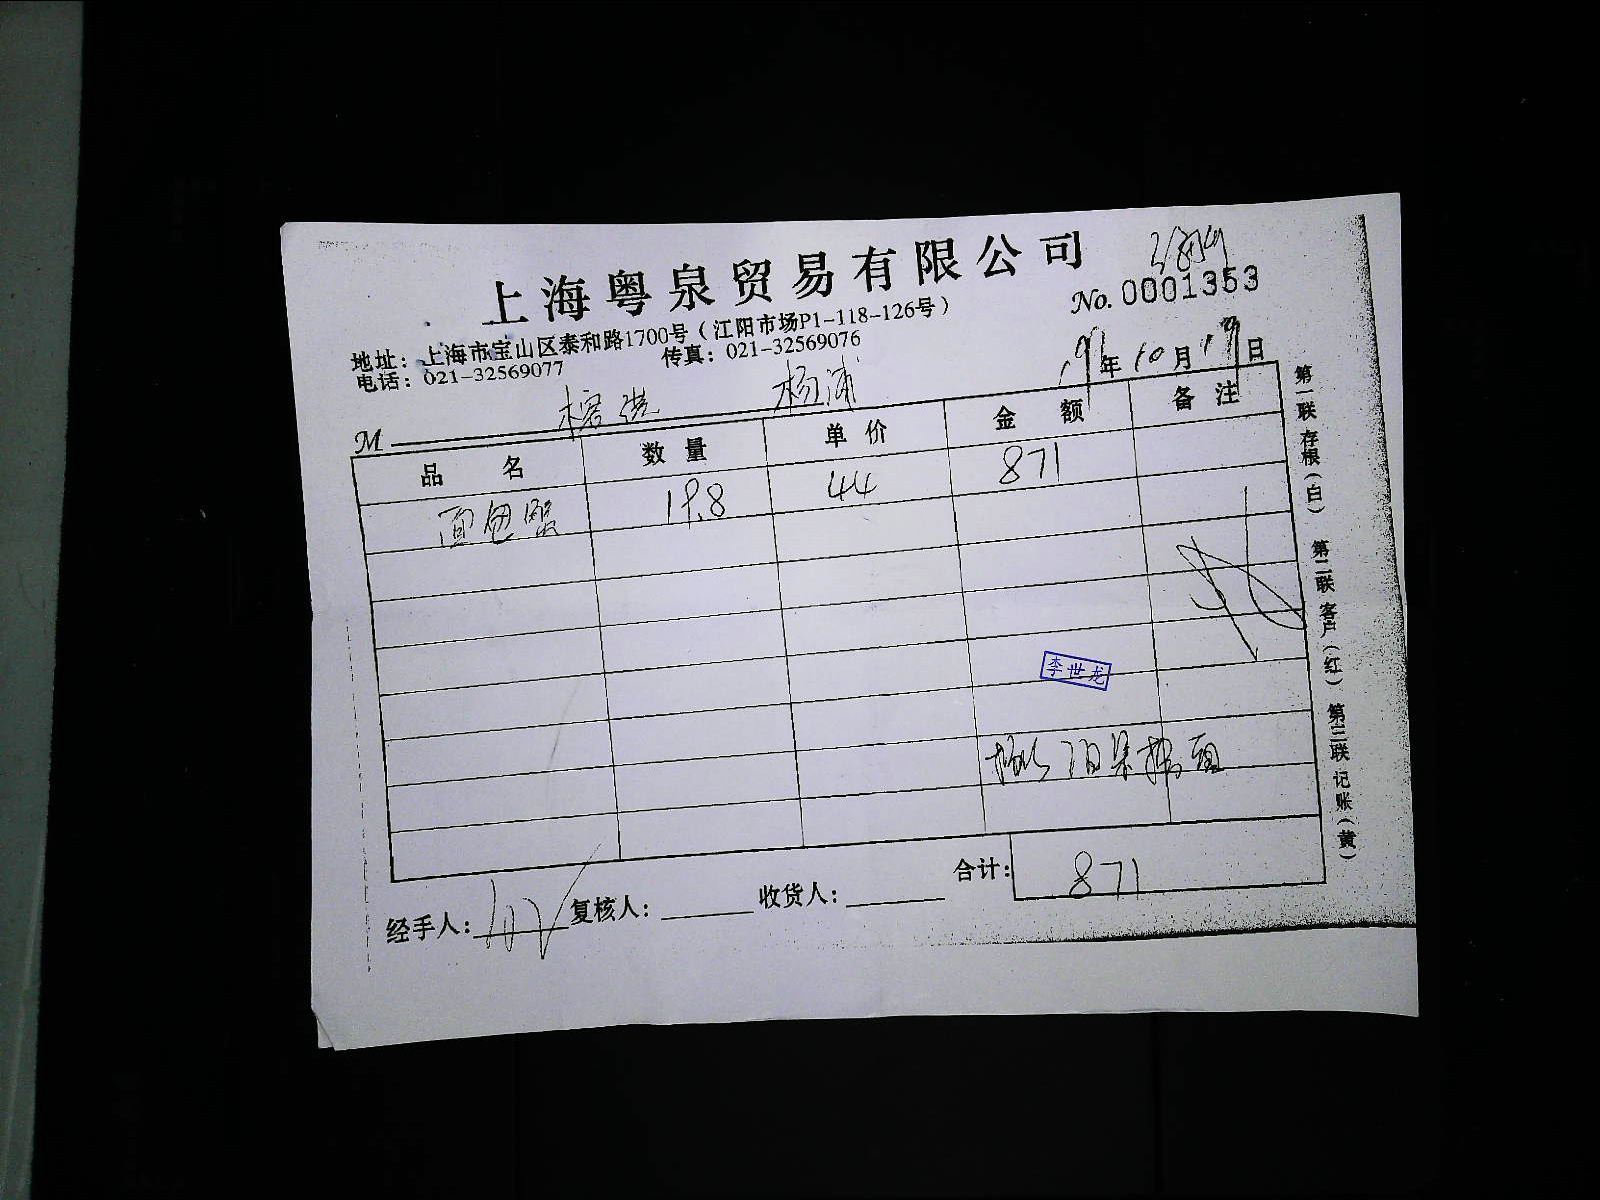 上海粤泉贸易有限公司
No. 0001353
地址：上海市宝山区泰和路1700号（江阳市场P1-118-126号）
电话：021-32569077 传真：021-32569076
19年10月19日
M 榕港 杨浦
品名 数量 单价 金额 备注
面包蟹 19.8 44 871
李世龙
合计：871
经手人： 复核人： 收货人：
第一联 存根（白） 第二联 客户（红） 第三联 记账（黄）